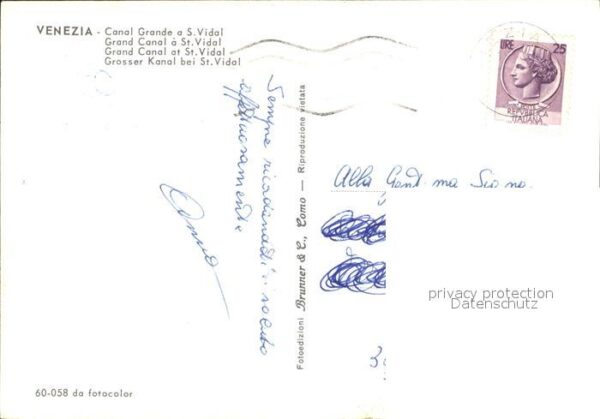 VENEZIA - Canal Grande a S. Vidal
Grand Canal à St. Vidal
Grand Canal at St. Vidal
Grosser Kanal bei St. Vidal
EZIA
LIRE 25
REPVBBLICA
ITALIANA
Sempre ricordandoti
saluto
affettuosamente
Fotoedizioni Brunner & C., Como — Riproduzione vietata
Alla Gent.ma Sig.na
privacy protection
ansichtskarten-center.de
60-058 da fotocolor